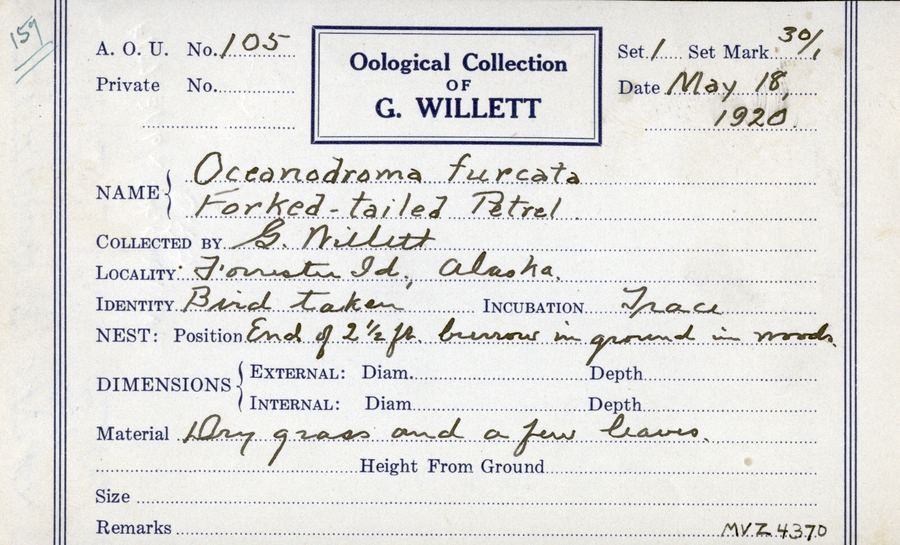 159
A. O. U. No. 105
Oological Collection
OF
G. WILLETT
Set 1 Set Mark 30/1
Private No.
Date May 18,
1920.
NAME { Oceanodroma furcata
Forked-tailed Petrel.
COLLECTED BY G. Willett
LOCALITY Forrester Id., Alaska.
IDENTITY Bird taken INCUBATION Trace
NEST: Position End of 2 1/2 ft. burrow in ground in woods.
DIMENSIONS { EXTERNAL: Diam. Depth
INTERNAL: Diam Depth
Material Dry grass and a few leaves.
Height From Ground
Size
Remarks MVZ 4370